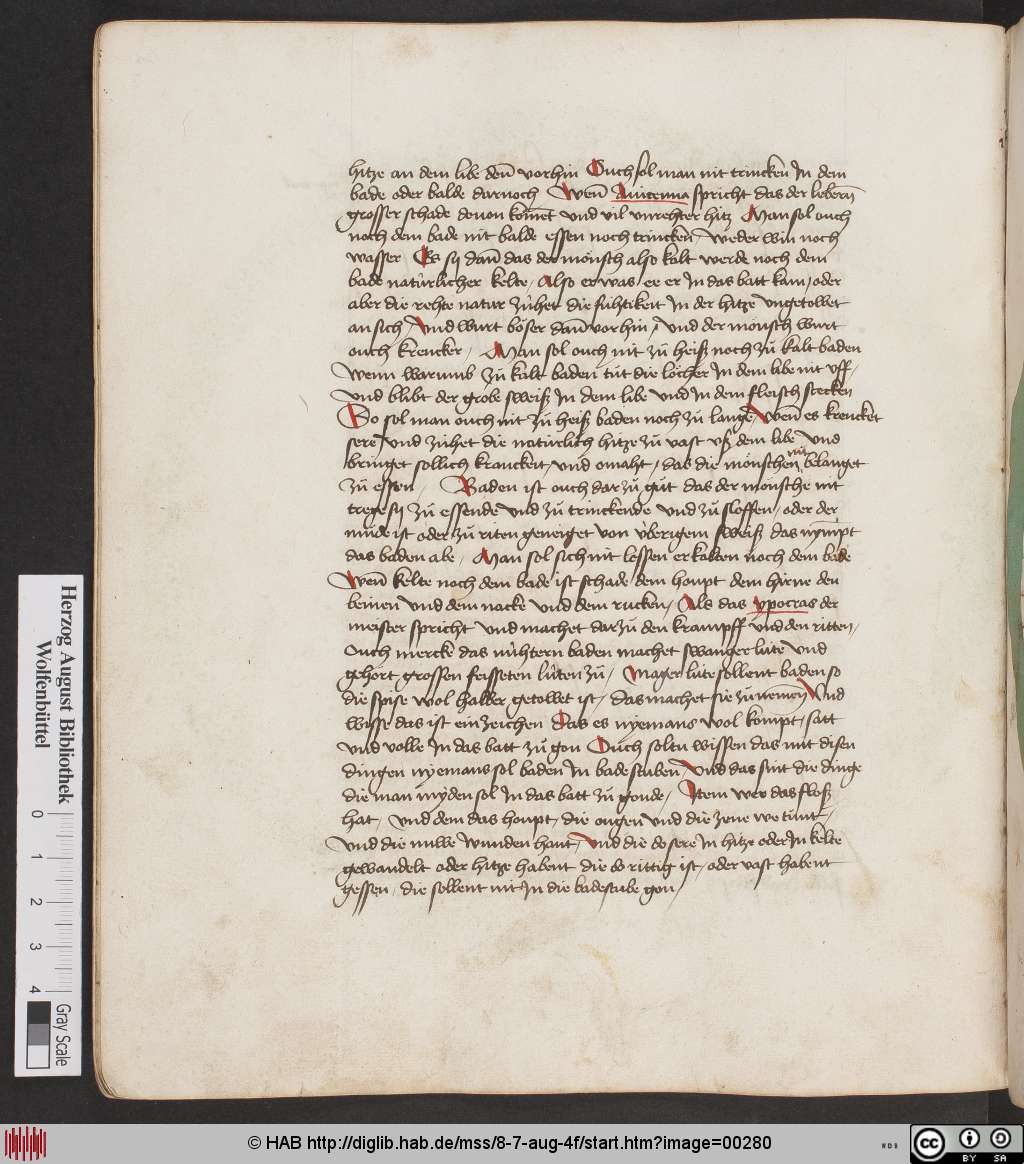 hitze an dem libe deñ vorhin Ouch sol man nit trincken In dem
bade oder balde darnoch Weñ Auicenna spricht das der lebern̄
grosser schade douon kom̄et vnd vil vnrehter hitz Man sol ouch
noch dem bade nit balde essen noch trincken, weder win noch
wasser Es sy dañ das der mönsch also kalt werde noch dem
bade natùrlicher kelte, Also er was ee er In das batt kam, oder
aber die rehte natur zùhet die fùhtikeit In der hitze vngetowet
an sich, Vnd wurt böser dañ vorhin, Vnd der mönsch wurt
ouch krencker, Man sol ouch nit zů heiß noch zů kalt baden
wenn warumb zů kalt baden tůt die löcher In dem libe nit vff,
vnd blibt der grobe sweiß In dem libe vnd In dem fleisch stecken
So sol man ouch nit zů heiß baden noch zů lange, Weñ es krencket
sere vnd zùhet die natùrlich hitze zů vast vß dem libe vnd
bringet sollich kranckeit vnd omaht, das die mönschen nit belanget
zů essen, Baden ist ouch dar zů gůt das der mönsche nit
trege sy zů essende vnd zů trinckende vnd zů sloffen, oder der
můde ist oder zů riten geneiget von ùberigem sweiß das nympt
das baden abe, Man sol sich nit lossen erkalten noch dem bade
Weñ kelte noch dem bade ist schade dem houpt dem hirne den
beinen vnd dem nacke vnd dem rucken, Als das ypocras der
meister spricht vnd machet dar zů den krampff vnd den ritten,
Ouch mercke das nùhtern baden machet swanger lùte vnd
gehört grossen feisseten lùten zů, Mager lùte sollent baden so
die spise wol halber getowet ist, das machet sie zů nemen Vnd
wisse das ist ein zeichen Das es nyemans wol kompt, satt
vnd volle In das batt zů gon Ouch soltu wissen das mit disen
dingen nyemans sol baden In badestuben, Vnd das sint die dinge
die man myden sol In das batt zů gonde, Item wer das floß
hat, vnd dem das houpt, die ougen vnd die zene we tůnt,
vnd die nùwe wunden hant, Vnd die do sere In hitze oder In kelte
gewandelt oder hitze habent die do rittig ist, oder vast habent
gessen, die sollent nit In die badestube gon,
Herzog August Bibliothek
Wolfenbüttel
0 1 2 3 4
Gray Scale
© HAB http://diglib.hab.de/mss/8-7-aug-4f/start.htm?image=00280
WDB
cc BY SA